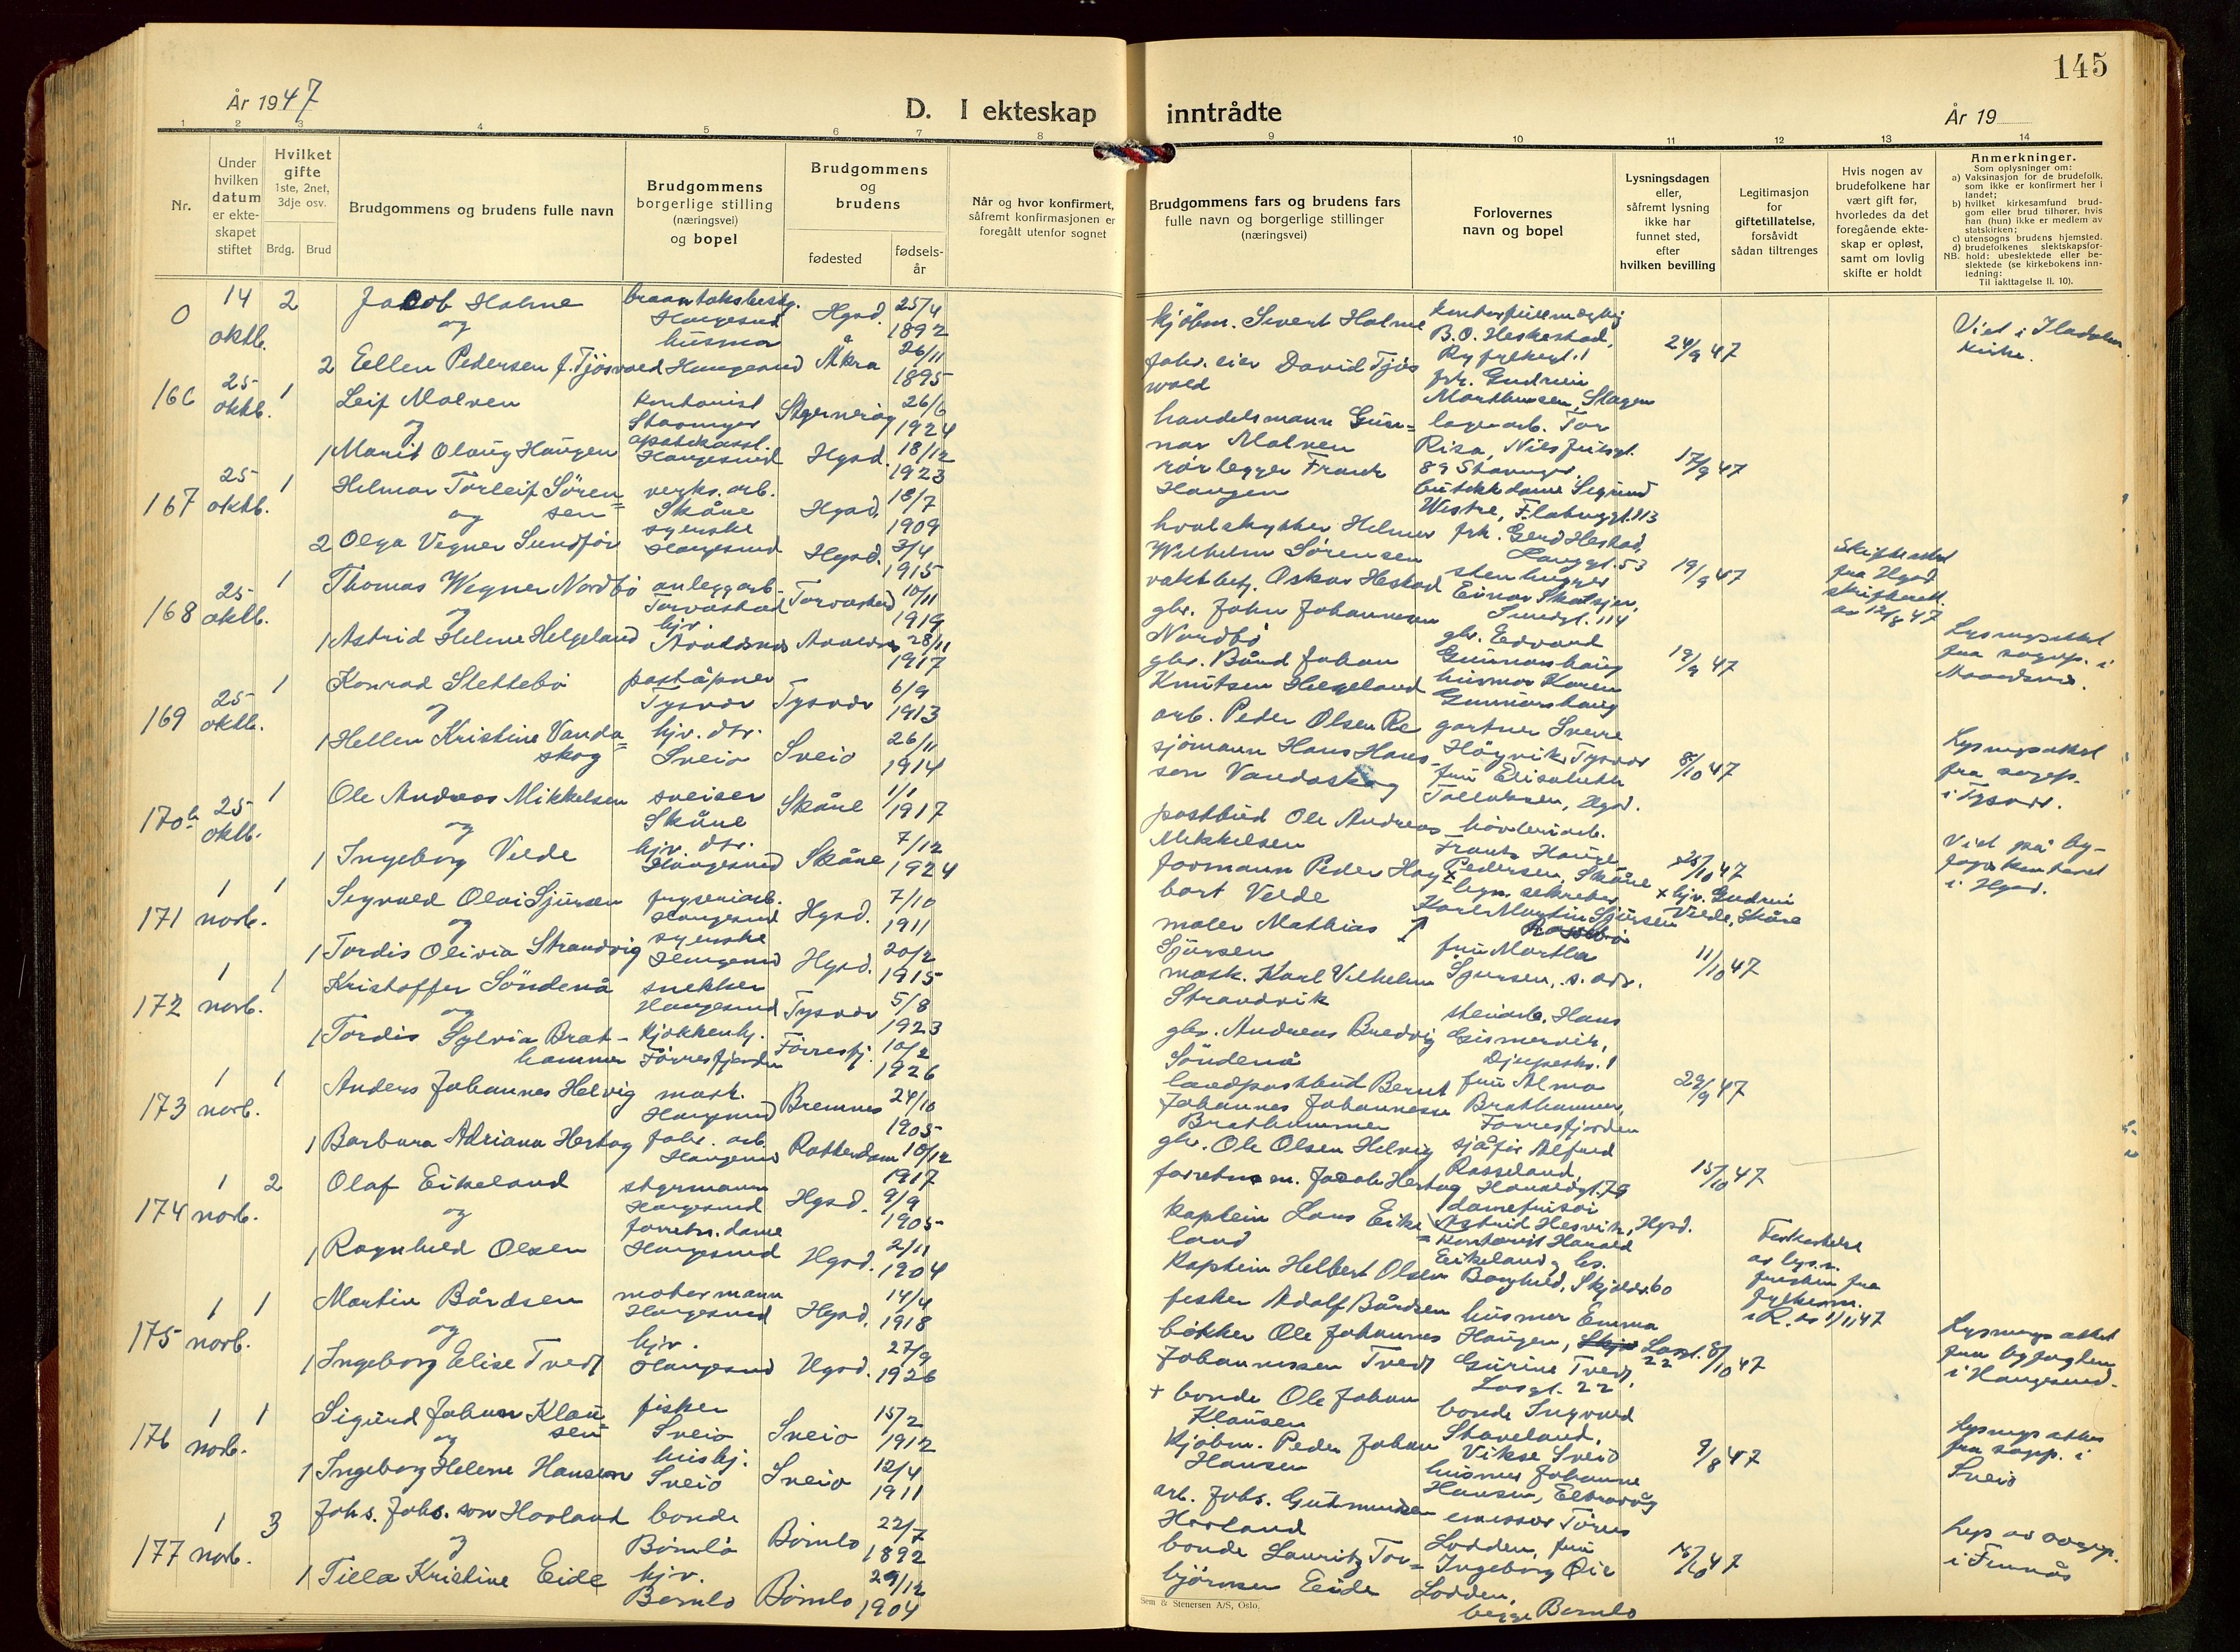 145
År 1947
D. I ekteskap inntrådte
År 19
1 2 3 4 5 6 7 8 9 10 11 12 13 14
Nr.
Under
hvilken
datum
er ekte-
skapet
stiftet
Hvilket
gifte
1ste, 2net,
3dje osv.
Brdg. Brud
Brudgommens og brudens fulle navn
Brudgommens
borgerlige stilling
(næringsvei)
og bopel
Brudgommens
og
brudens
fødested
fødsels-
år
Når og hvor konfirmert,
såfremt konfirmasjonen er
foregått utenfor sognet
Brudgommens fars og brudens fars
fulle navn og borgerlige stillinger
(næringsvei)
Forlovernes
navn og bopel
Lysningsdagen
eller,
såfremt lysning
ikke har
funnet sted,
efter
hvilken bevilling
Legitimasjon
for
giftetillatelse,
forsåvidt
sådan tiltrenges
Hvis nogen av
brudefolkene har
vært gift før,
hvorledes da det
foregående ekte-
skap er opløst,
samt om lovlig
skifte er holdt
Anmerkninger.
Som oplysninger om:
a) Vaksinasjon for de brudefolk,
som ikke er konfirmert her i
landet;
b) hvilket kirkesamfund brud-
gom eller brud tilhører, hvis
han (hun) ikke er medlem av
statskirken;
c) utensogns brudens hjemsted.
d) brudefolkenes slektskapsfor-
NB. hold: ubeslektede eller be-
slektede (se kirkebokens inn-
ledning:
Til iakttagelse II. 10).
0 14 oktb. 2 Jacob Holme Haugesund Hgsd. 25/4 1892
og
husmor
2 Ellen Pedersen f. Tjösvold Haugesund Åkra 26/11 1895
kjöbm. Sivert Holme
B.O. Heskestad,
Ryfylkegt. 1
24/9 47
fabr. eier David Tjös
wold
frk. Gudrun
Marthinsen, Slagen
Viet i
kirke.
166 25 oktb. 1 Leif Malven kontorist Stavanger 26/6 1924
og
1 Marit Olaug Haugen Haugesund Hgsd. 18/12 1923
handelsmann Gun=
nar Malven
lagerarb. Tor
Risa, Nils Juelsgt.
89 Stavanger.
17/9 47
rörlegger Frank
Haugen
butikkdame Sigrund
167 25 oktb. 1 Helmar Torleif Sören=
sen
og
verks. arb.
Skåne Hgsd. 18/7 1909
2 Olga Vegner Sundför syerske
Haugesund Hgsd. 3/4 1915
hvalskytter Helmer
Wilhelm Sörensen
frk. Gerd Hestad,
Langgt. 53
19/9 47
vaktbetj. Oskar Hestad
Sundgt. 114
Skifteattest
fra Hgsd.
skifterett.
av 12/8 47
168 25 oktb. 1 Thomas Wegner Nordbö anleggarb.
Torvastad Torvastad 10/11 1919
og
1 Astrid Helene Helgeland hjv.
Avaldsnes Avaldsnes 28/11 1917
gbr. John Johannesen
Nordbö
gbr. Edvard
Gunnarshaug
19/9 47
gbr. Bård Johan
Knutsen Helgeland
husmor Karen
Gunnarshaug
Lysningsattest
fra sogep. i
Avaldsnes.
169 25 oktb. 1 Konrad Slettebö poståpner
Tysvær Tysvær 6/9 1913
og
1 Hellen Kristine Vanda=
skog hjv. dtr.
Sveio Sveio 26/11 1914
arb. Peder Olsen Re
gartner Sverre
Högvik, Tysvær
8/10 47
sjömann Hans Han-
sen Vandaskog
fru Elisabeth
Tollaksen, Hgsd.
Lysningsattest
fra sogep.
i Tysvær.
170b 25 oktb. 1 Ole Andreas Mikkelsen sveiser
Skåne Skåne 1/1 1917
og
1 Ingeborg Velde hjv. dtr.
Haugesund Skåne 7/12 1924
postbud Ole Andreas
Mikkelsen
Frants Hauge
Pedersen, Skåne
25/10 47
formann Peder Hag
bart Velde
x hjv. Gudrun
Velde, Skåre
Viet på by-
fogdkontoret
i Hgsd.
171 1 novb. 1 Sigvald Olai Sjursen fryseriarb.
Haugesund Hgsd. 7/10 1911
og
1 Tordis Olivia Strandvig syerske
Haugesund Hgsd. 20/2 1915
maler Mathias
Sjursen
Karl Martin Sjursen
11/10 47
mask. Karl Vilhelm
Strandvik
fru Martha
Sjursen, s. adr.
172 1 novb. 1 Kristoffer Söndenå snekker
Haugesund Tysvær 5/8 1923
og
1 Tordis Sylvia Brat-
hammer kjökkenhj.
Förresfjorden Förresfj. 10/2 1926
gbr. Andreas Bredvig
Söndenå
stenarb. Hans
Gismervik,
29/9 47
landpostbud Bernt
Johannes Johannessen
Brathammer
fru Alma
Brathammer,
Förresfjorden
173 1 novb. 1 Anders Johannes Helvig mask.
Haugesund Bremnes 24/10 1905
1 Barbara Adriana Hertog fabr. arb.
Haugesund Rotterdam 10/12 1917
gbr. Ole Olsen Helvig
sjåför Alfred
Rosseland,
15/10 47
forretn. m. Jacob Hertog
damefrisör
Astrid Hesvik, Hgsd.
174 1 novb. 2 Olaf Eikeland styrmann
Haugesund Hgsd. 9/9 1905
og
1 Ragnhild Olsen forretn. dame
Haugesund Hgsd. 2/11 1904
kaptein Lars Eike
land
= kontorist Harald
Eikeland
kaptein Helbert Olsen
Borghild, Skjoldv. 60
av lysn.
fristen fra
fylkesm.
i R. av 1/11 47
175 1 novb. 1 Martin Bårdsen motormann
Haugesund Hgsd. 14/4 1918
og
1 Ingeborg Elise Tvedt hjv.
Haugesund Hgsd. 27/9 1926
fisker Adolf Bårdsen
husmor Emma
Haugen, Losgt. 22
8/10 47
bökker Ole Johannes
Johannessen Tvedt
Gurine Tvedt,
Losgt. 22
Lysnings attest
fra byfogden
i Haugesund.
176 1 novb. 1 Sigurd Johan Klau=
sen fisker
Sveio Sveio 15/2 1912
og
1 Ingeborg Helene Hansen hushj.
Sveio Sveio 12/4 1911
+ bonde Ole Johan
Klausen
bonde Ingvald
Staveland,
Vikse Sveio
9/8 47
kjöbm. Peder Johan
Hansen
husmor Johanne
Hansen, Eltravåg
Lysnings attest
fra sogep. i
Sveio
177 1 novb. 3 Johs. Johs. son Hovland bonde
Bömlo Bömlo 22/7 1892
og
1 Tilla Kristine Eide hjv.
Bömlo Bömlo 29/12 1904
arb. Johs. Gutmundsen
Hovland
emissær Törres
Lodden, fru
15/10 47
bonde Lauritz Tor=
björnsen Eide
Ingeborg Öie
Lodden,
begge Bömlo
Lys. av sogep.
i Finnås
Sem & Stenersen A/S, Oslo.